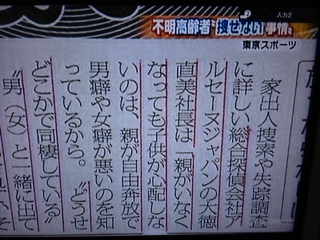 入力2
不明高齢者"捜せない"事情
東京スポーツ
家出人捜索や失踪調査
に詳しい総合探偵会社ア
ルセーヌジャパンの大徳
直美社長は「親がいなく
なっても子供が心配しな
いのは、親が自由奔放で
男癖や女癖が悪いのを知
っているから。〝どうせ
どこかで同棲している〟
〝男(女)と一緒に出て